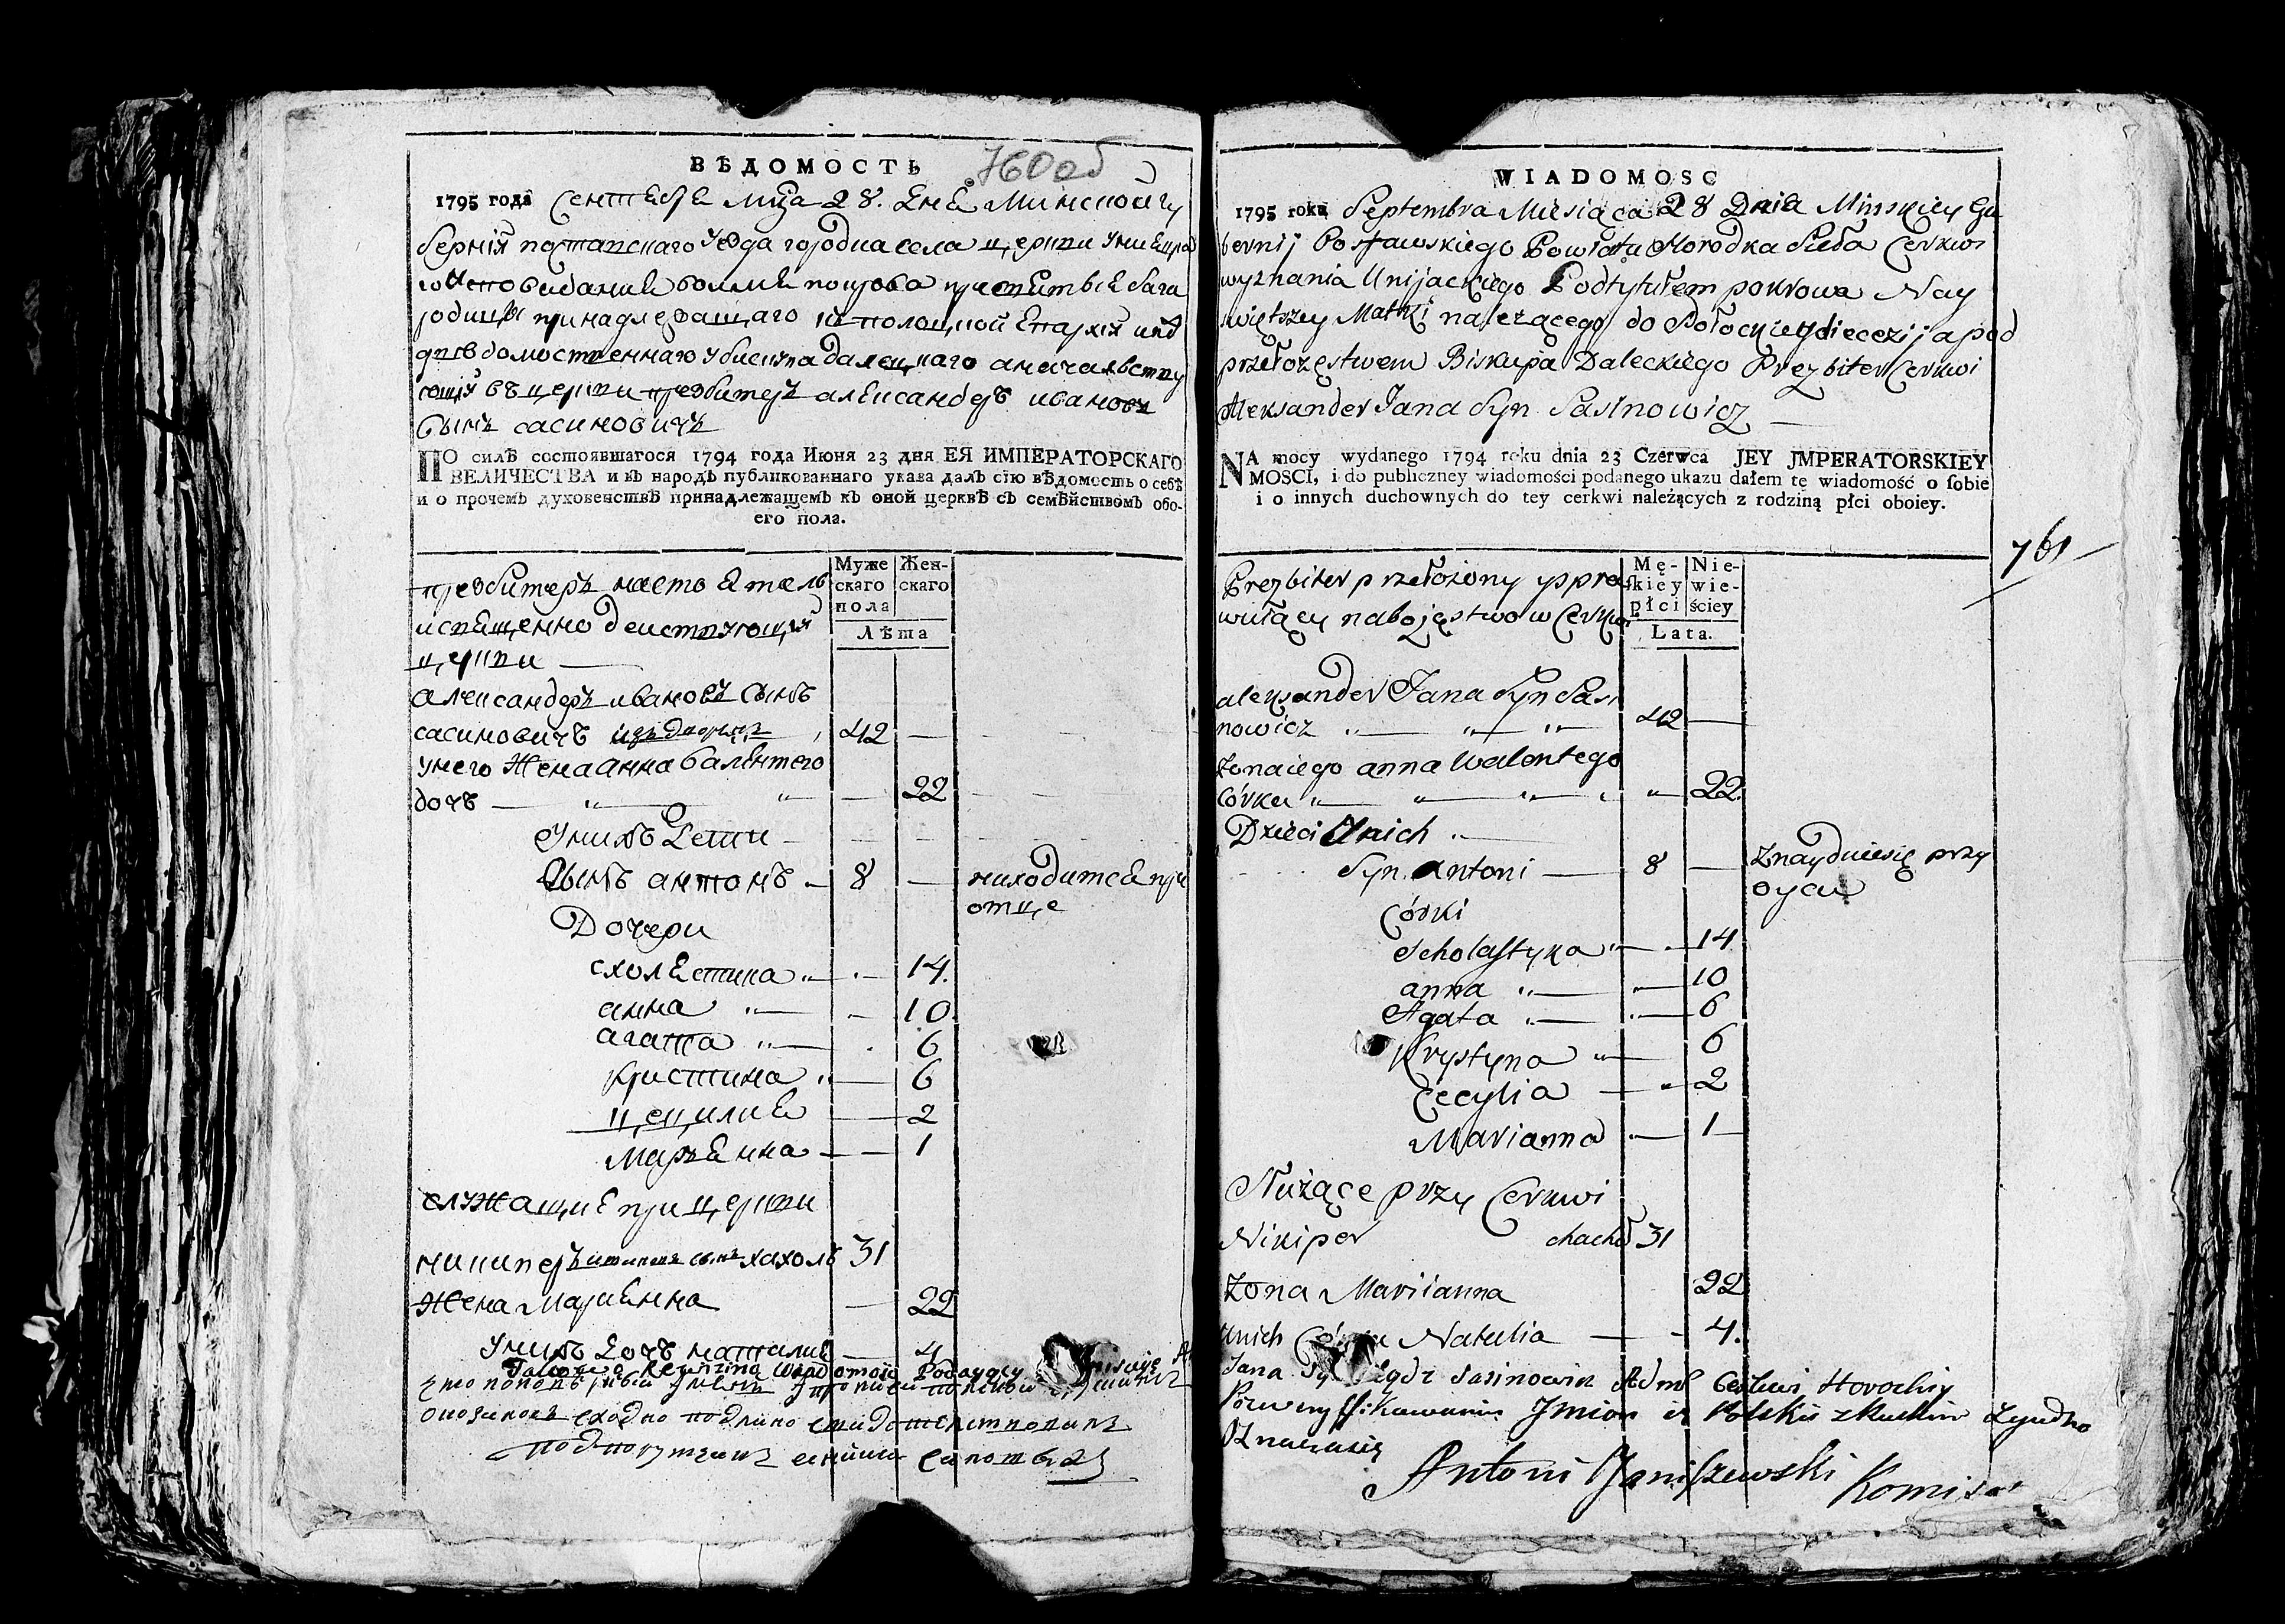 ВѢДОМОСТЬ 760 об
1795 года Сентебря мца 28. дня Минской гу
бернїи поставскаго уезда городка села церкви униецка
го исповидания во имя покрова пресветыя бага
родицы принадлежащаго къ полоцкой епархїи и въ
домественнаго бискупа далецкаго а началвству
ющїй въ церкви презбитеръ александеръ ивановъ
сынъ сасиновичъ
ПО силѣ состоявшагося 1794 года Июня 23 дня ЕЯ ИМПЕРАТОРСКАГО
ВЕЛИЧЕСТВА и въ народъ публикованнаго указа далъ сїю вѣдомость о себѣ
и о прочемъ духовенствѣ принадлежащемъ къ оной церквѣ съ семѣйствомъ обо-
его пола.
Муже скаго пола Жен- скаго
Лѣта
презбитеръ настоятель
и священно деиствующїй
церкви
александеръ ивановъ сынъ
сасиновичъ 42 —
у него жена анна валентего
дочъ — 22
у нихъ дети
сынъ антонъ 8 — находится при
отце
Дочери
схолестика 14.
анна 10.
агата 6
кристина 6
цецилия 2
марьянна 1
служащие при церкви
никиперъ сынъ хахолъ 31
жена мариянна — 22
у нихъ дочъ наталия 4
Takową Rewizіiną Wiadomość Podaiący
сходно

WIADOMOSC
1795 roku Septembra Miesiąca 28 Dnia Minskiey Gu
bernij Postawskiego Powiatu Horodka Sieła Cerkwi
wyznania Unijackiego Podtytułem pokrowa Nay
świętszey Matki należącego do Połockiey diecezij a pod
przełożęstwem Biskupa Daleckiego Prezbiter Cerkwi
Aleksander Jana Syn Sasinowicz
NA mocy wydanego 1794 roku dnia 23 Czerwca JEY JMPERATORSKIEY
MOSCI, i do publiczney wiadomości podanego ukazu dałem tę wiadomość o sobie
i o innych duchownych do tey cerkwi należących z rodziną płci oboiey.
761
Mę- skiey płci Nie- wie- ściey
Lata.
Prezbiter przełożony y pra
wuiący nabożęstwo w Cerkwi
aleksander Jana Syn Sasi
nowicz 42 —
Żona iego anna Walentego
Córka 22.
Dzieci Unich
Syn antoni — 8 — Znayduiesię przy
oycu
Córki
Scholastyka 14
anna 10
Agata 6
Krystyna 6
Cecylia 2
Marianna 1
Służące przy Cerkwi
Nikiper chachoł 31
Żona Mariianna 22
Unich Córka Natalia 4.
Jana Sasinowicz Adm Cerkwi
Antoni Janiszewski Komisar